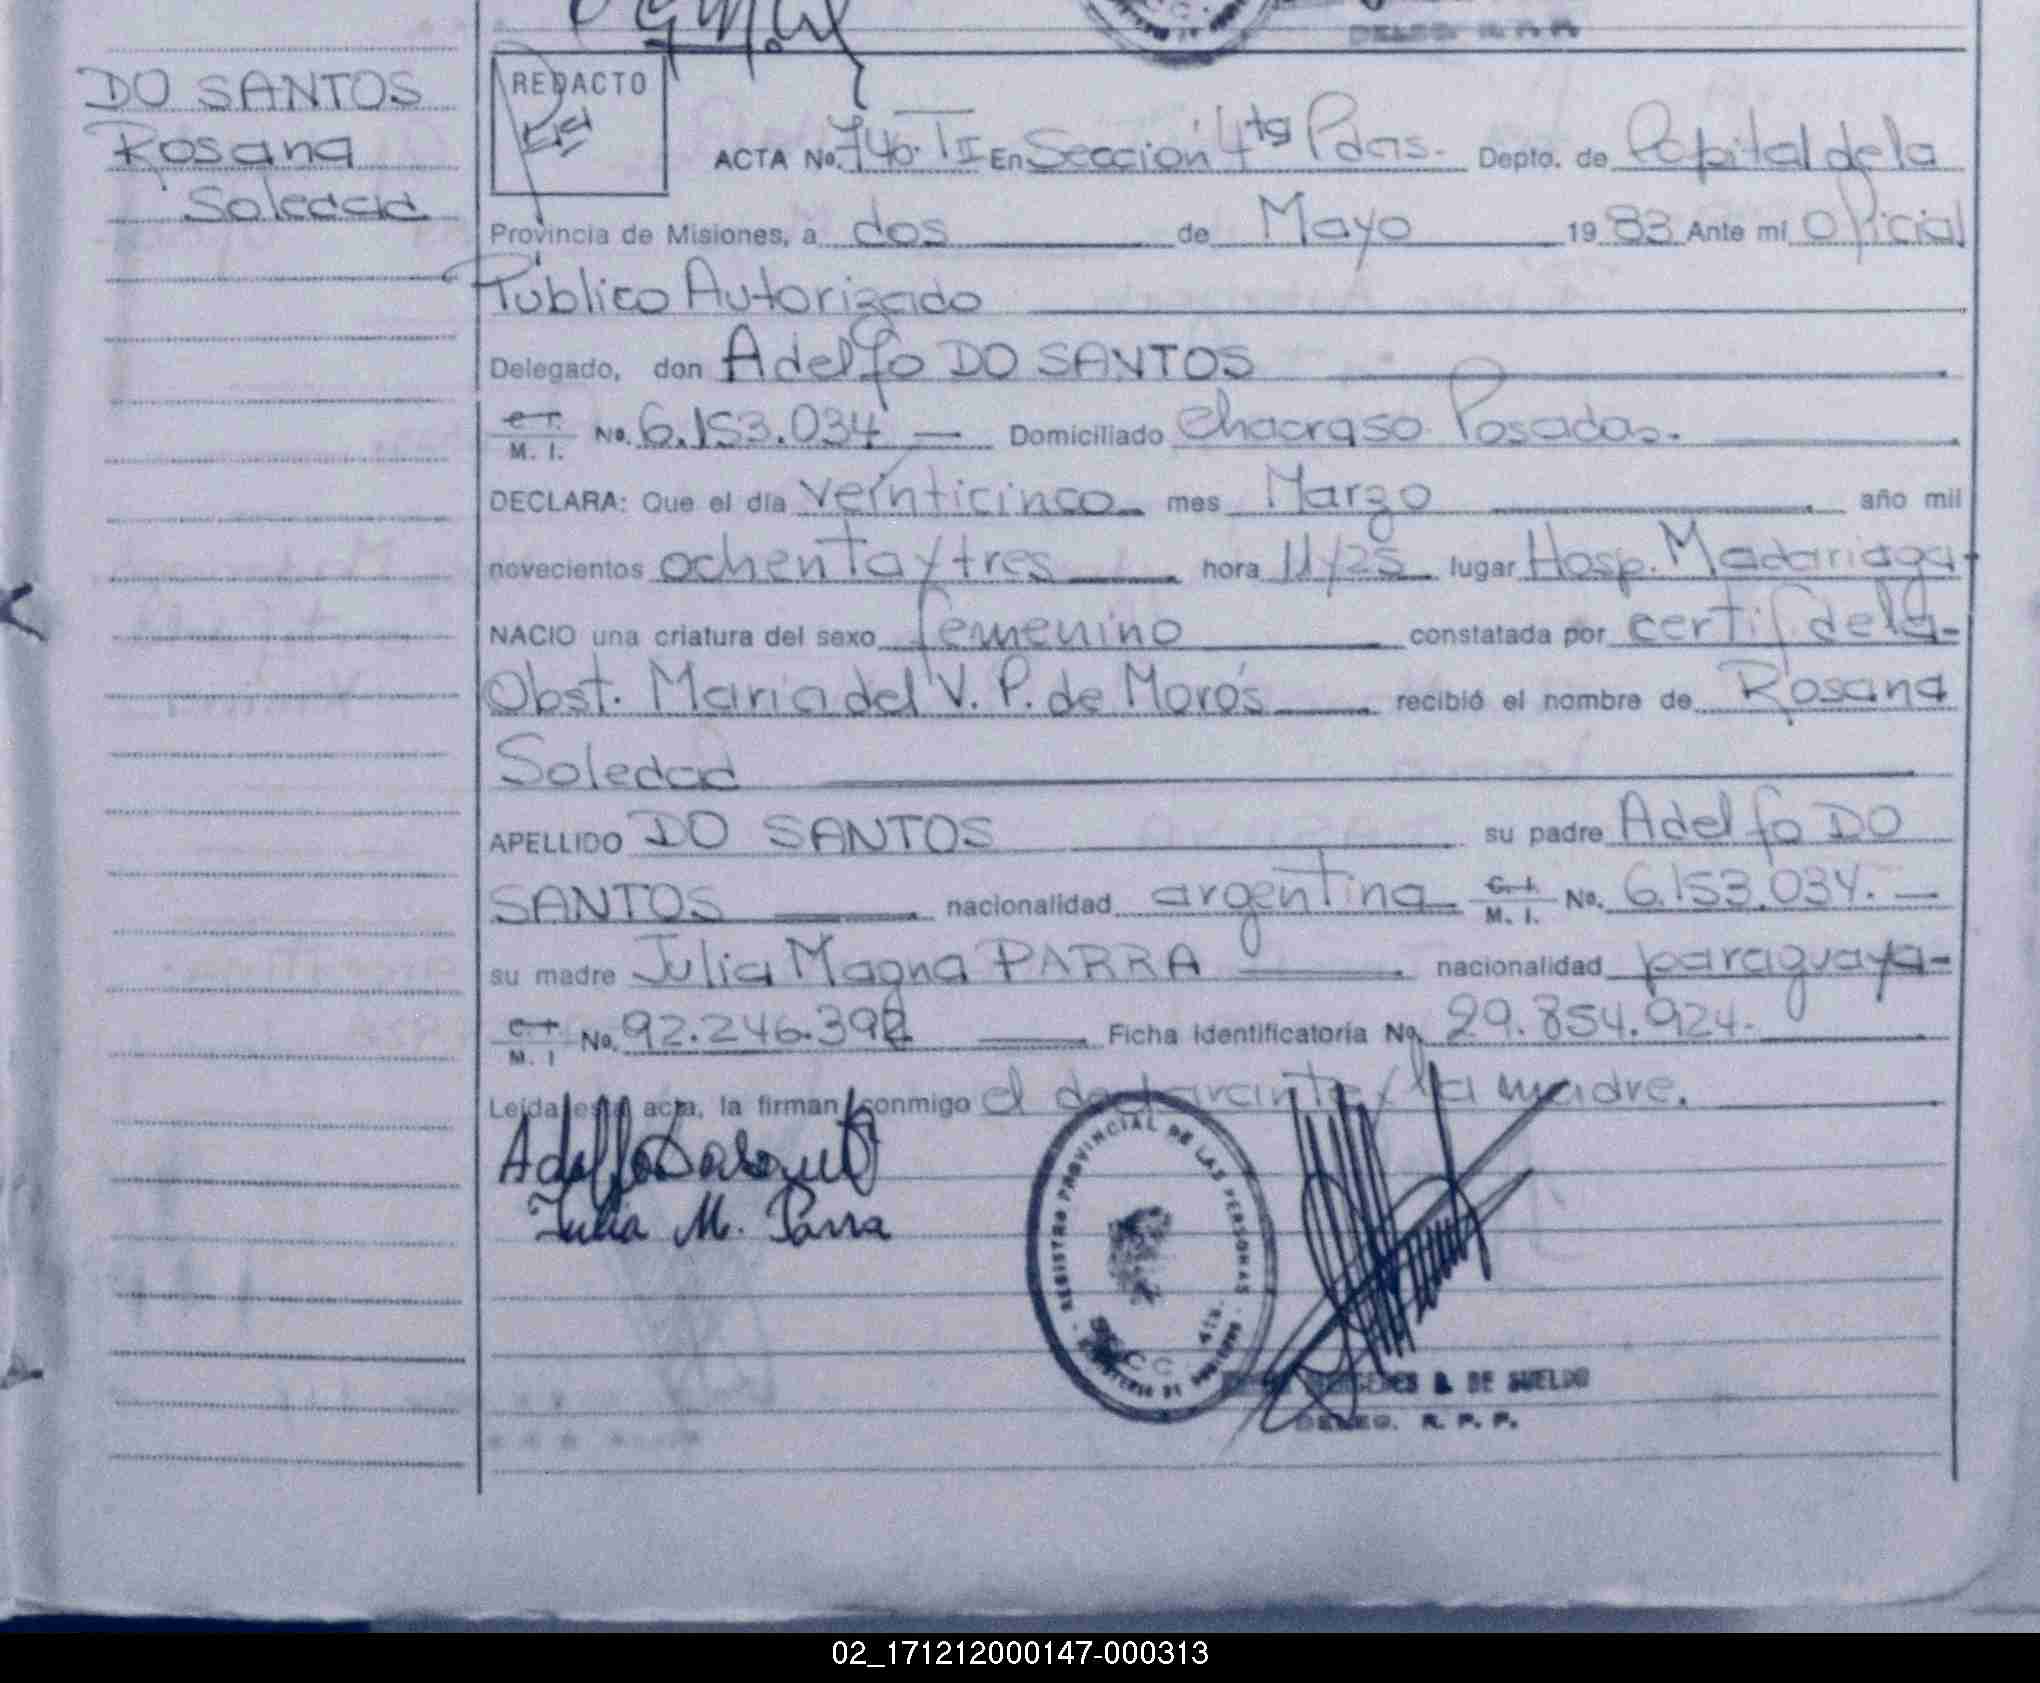 DELEG. R.P.P.
DO SANTOS
Rosana
Soledad
REDACTO
ACTA No. 746. TII En Sección 4ta Pdas. Depto. de Capital de la
Provincia de Misiones, a dos de Mayo 1983 Ante mí Oficial
Público Autorizado
Delegado, don Adelfo DO SANTOS
C. I. M. I. No. 6.153.034 — Domiciliado Chacra 50 Posadas.
DECLARA: Que el día veinticinco mes Marzo año mil
novecientos ochenta y tres hora 11/25 lugar Hosp. Madariaga
NACIO una criatura del sexo femenino constatada por certif de la
Obst. Maria del V. P. de Morós recibió el nombre de Rosana
Soledad
APELLIDO DO SANTOS su padre Adelfo DO
SANTOS nacionalidad argentina C. I. M. I. No. 6.153.034. —
su madre Julia Magna PARRA nacionalidad paraguaya
C. I. M. I No. 92.246.392 Ficha identificatoria No. 29.854.924.
Leída esta acta, la firman conmigo el declarante y la madre.
Adolfo
Julia M. Parra
REGISTRO PROVINCIAL DE LAS PERSONAS
SECC. 4ta.
B. DE SUELDO
DELEG. R. P. P.
02_171212000147-000313